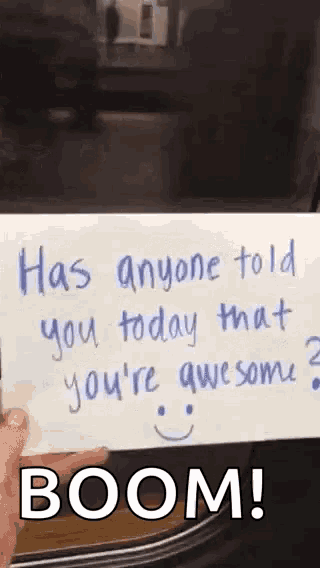 Has anyone told
you today that
you're awesome?
BOOM!